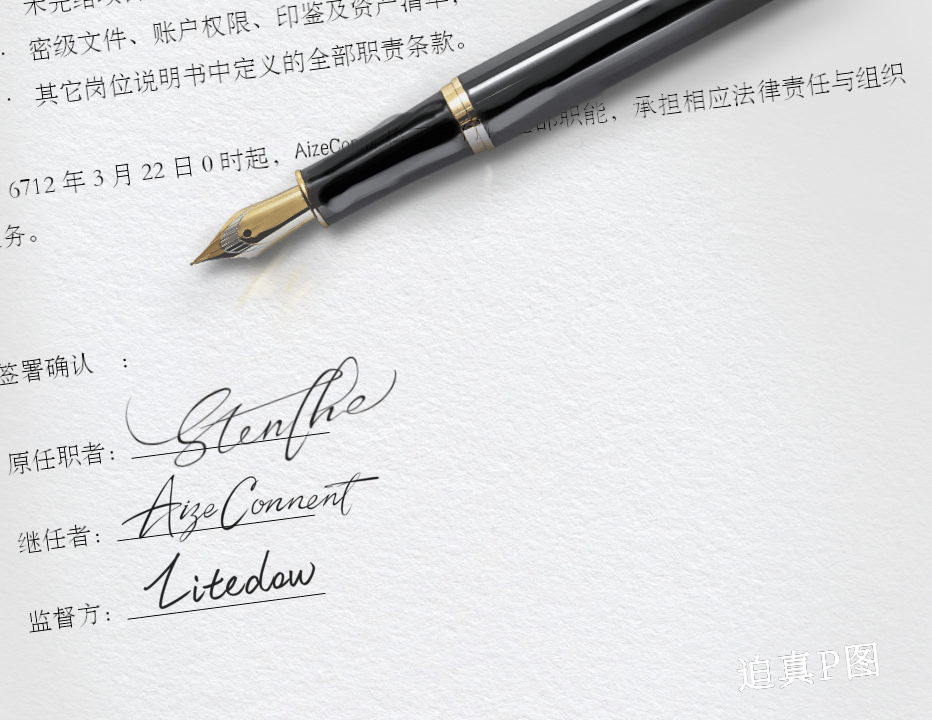 · 密级文件、账户权限、印鉴及资产清单，
· 其它岗位说明书中定义的全部职责条款。
6712 年 3 月 22 日 0 时起，AizeCon 职能，承担相应法律责任与组织
务。
签署确认 ：
原任职者：Stenthe
继任者：AizeConnent
监督方：Litedow
迫真P图